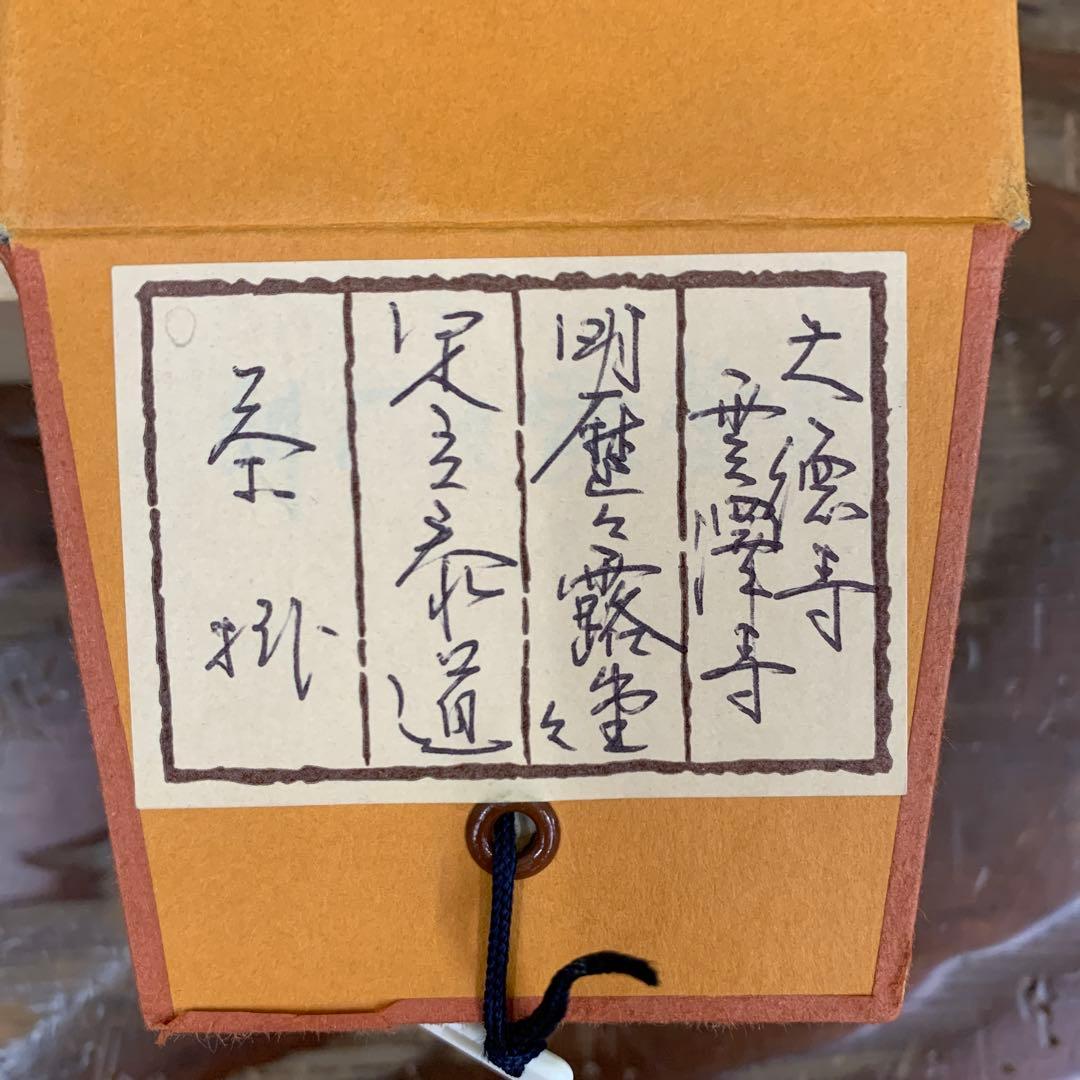 大德寺
雲澤寺
明歴々露堂々
足立泰道
茶掛